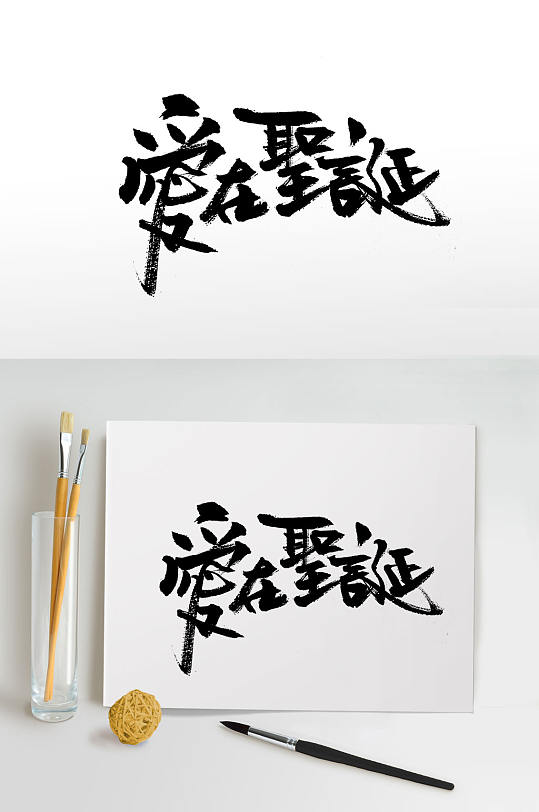 愛在聖誕
愛在聖誕